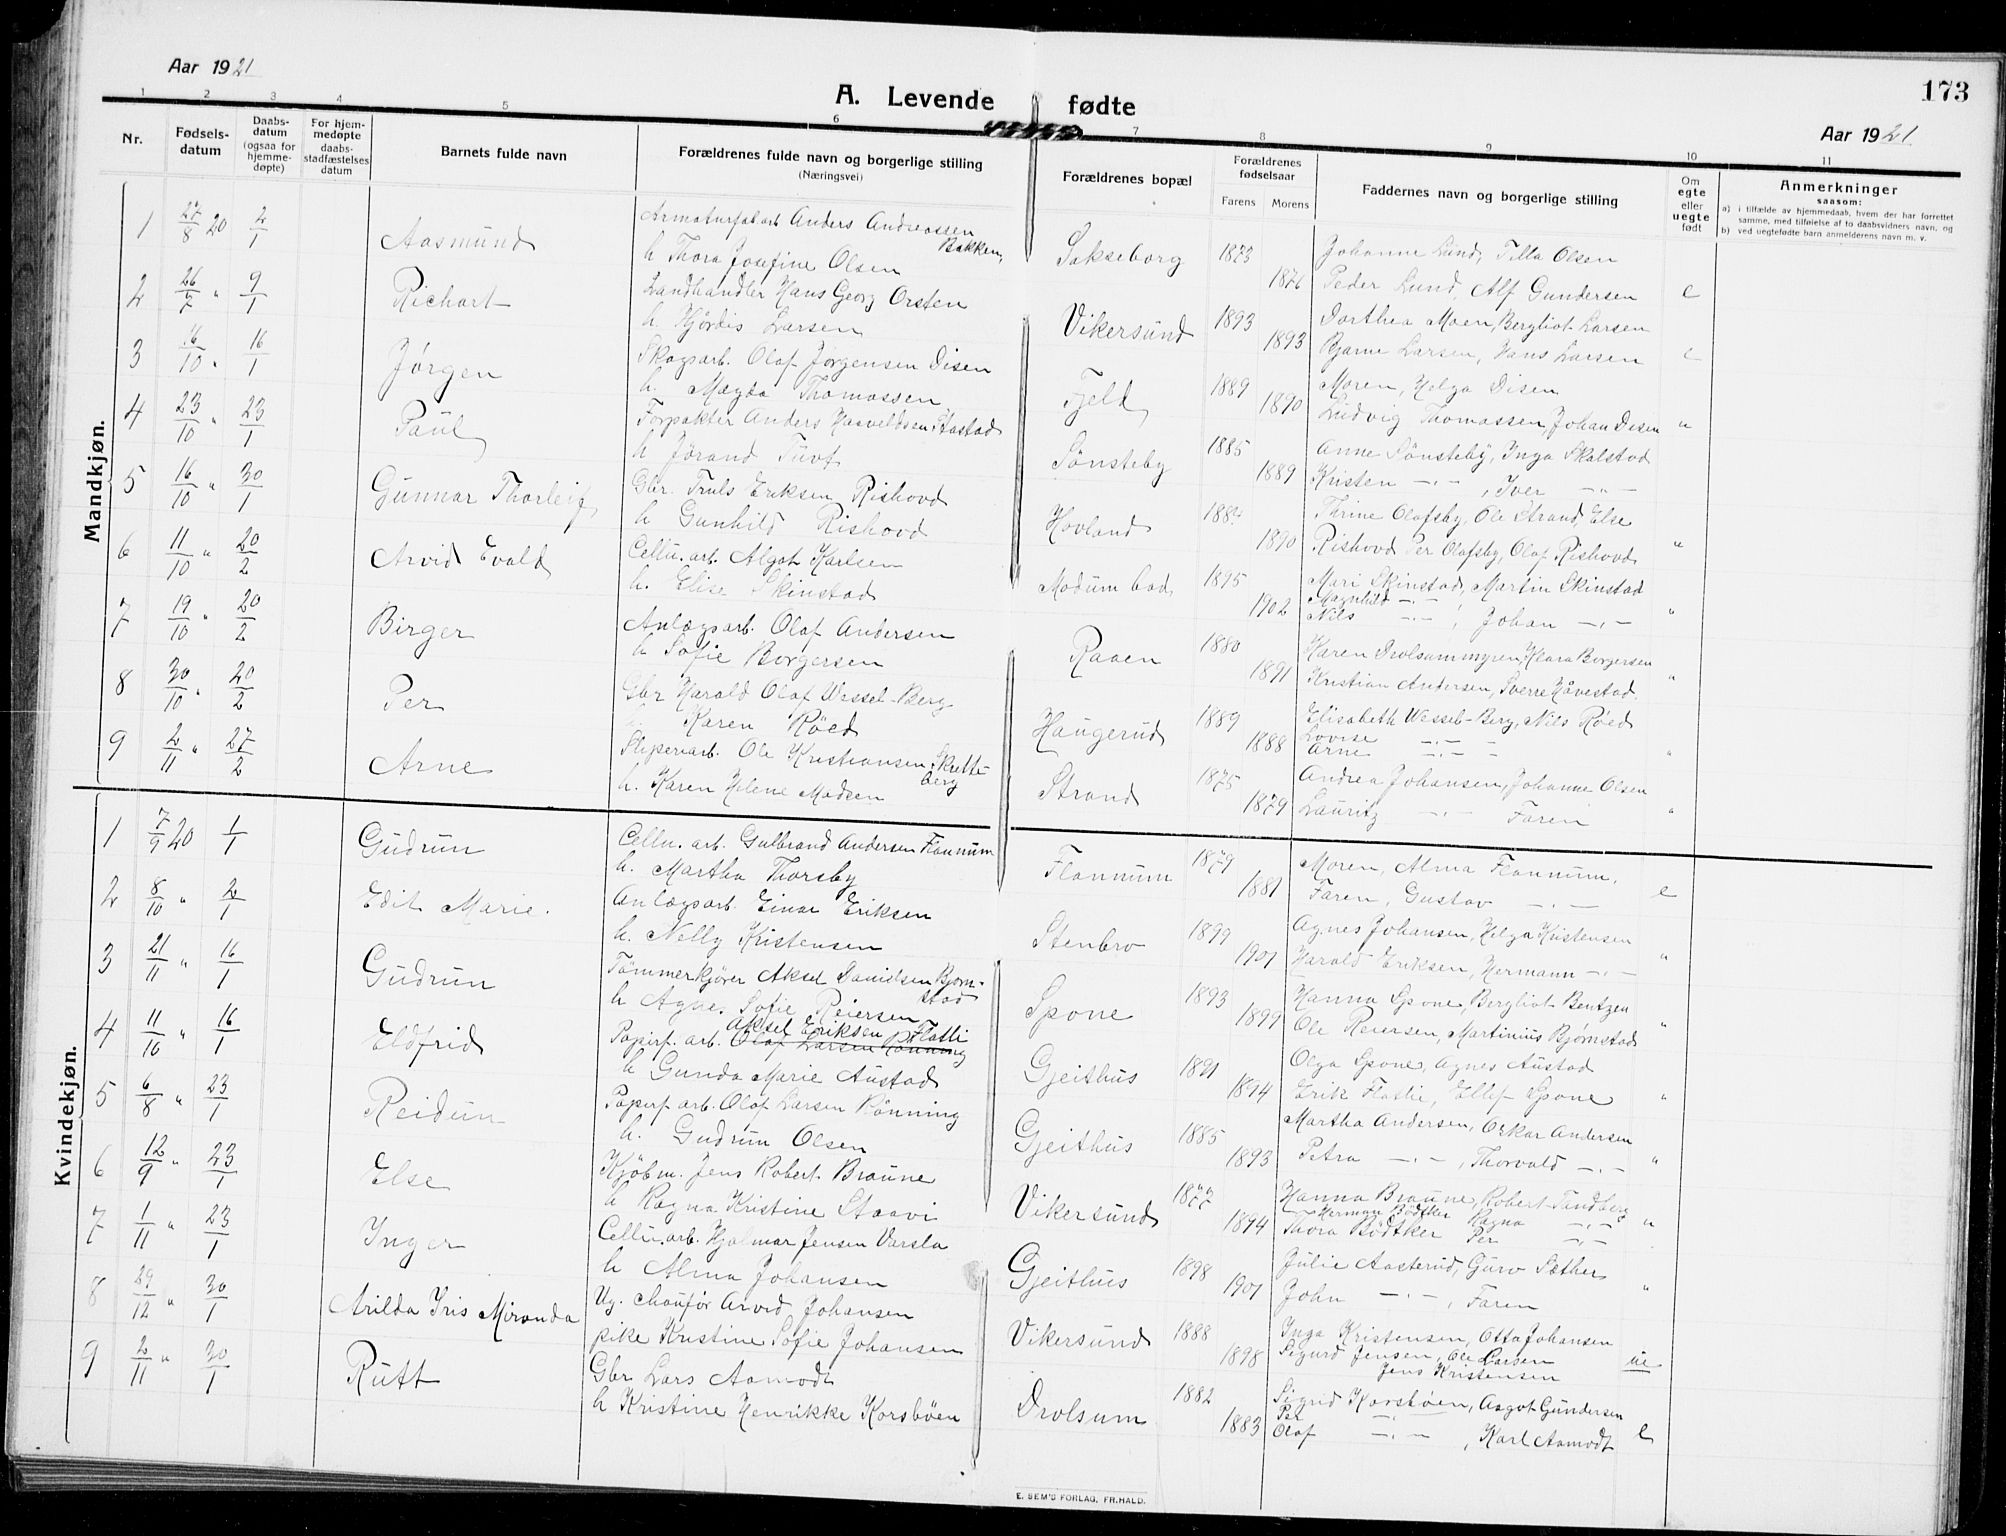 Aar 1921
A. Levende fødte
173
Aar 1921
1 2 3 4 5 6 7 8 9 10 11
Nr.
Fødselsdatum
Daabsdatum (ogsaa for hjemmedøpte)
For hjemmedøpte daabsstadfæstelses datum
Barnets fulde navn
Forældrenes fulde navn og borgerlige stilling
(Næringsvei)
Forældrenes bopæl
Forældrenes fødselsaar
Farens Morens
Faddernes navn og borgerlige stilling
Om egte eller uegte født
Anmerkninger
saasom:
a) i tilfælde av hjemmedaab, hvem der har forrettet samme, med tilføielse af to daabsvidners navn, og
b) ved uegtefødte barn anmelderens navn m. v.
Mandkjøn.
1 27/8 20 2/1 Aasmund Armaturfab.arb. Anders Andreassen Bakken, Sakseborg 1873 Johanne Lund, Tilla Olsen
h Thora Josefine Olsen 1876 Peder Lund, Alf Gundersen e
2 26/7 " 9/1 Richart Landhandler Hans Georg Orsten Vikersund 1893 Dorthea Moen, Bergliot Larsen
h. Hjördis Larsen 1893 Bjarne Larsen, Hans Larsen e
3 16/10 " 16/1 Jørgen Skogsarb. Olaf Jørgensen Disen Fjeld 1889 Moren, Helga Disen
h. Magda Thomassen 1890 Ludvig Thomassen, Johan Disen "
4 23/10 " 23/1 Paul Forpakter Anders Stastad Sønsteby 1885 Anne Sønsteby, Inga Skalstad
h Jørand Tuft 1889 Kristen -"- , Iver -"-
5 16/10 " 30/1 Gunnar Thorleif Gbr. Truls Eriksen Rishovd Hovland 1884 Thrine Olafsby, Ole Strand, Else
h Gunhild Rishovd 1890 Rishovd Per Olafsby, Olaf Rishovd "
6 11/10 " 20/2 Arvid Evald Cellu. arb. Algot Karlsen Modum bad 1895 Mari Skinstad, Martin Skinstad
h. Elise Skinstad 1902 Magnhild -"- ,
Nils -"- , Johan -"- "
7 19/10 " 20/2 Birger Anlægsarb. Olaf Andersen Raaen 1880 Karen Drolsummyren, Klara Borgersen
h Sofie Borgersen 1891 Kristian Andersen, Sverre Håvestad. "
8 30/10 " 20/2 Per Gbr Harald Olaf Wessel-Berg Haugerud 1889 Elisabeth Wessel-Berg, Nils Röed
h. Karen Röed 1888 Lovise -"-
Arne -"- "
9 2/11 " 27/2 Arne Sliperiarb. Ole Kristiansen Skretteberg Strand 1875 Andrea Johansen, Johanne Olsen
h. Karen Helene Madsen 1879 Lauritz -"- Faren "
Kvindekjøn.
1 7/9 20 1/1 Gudrun Cellu. arb. Gulbrand Andersen Flannum Flannum 1879 Moren, Alma Flannum,
h. Martha Thorsby 1881 Faren, Gustav -"- e
2 8/10 " 2/1 Edit Marie. Anlægsarb. Einar Eriksen Stenbro 1899 Agnes Johansen, Helga Kristensen
h. Nelly Kristensen 1901 Harald Eriksen, Hermann -"- "
3 21/11 " 16/1 Gudrun Tömmerkjörer Aksel Danielsen Bjørnstad Spone 1893 Hanna Spone, Bergliot Bentzen
h Agne. Sofie Reiersen 1899 Ole Reiersen, Martinius Bjørnstad "
4 11/10 " 16/1 Eldfrid Papirf. arb. Aksel Eriksen Flatli Olaf Larsen Rönning Gjeithus 1891 Olga Spone, Agnes Austad
h Gunda Marie Austad 1894 Erik Flatlie, Ellef Spone "
5 6/8 " 23/1 Reidun Papirf. arb. Olaf Larsen Rönning Gjeithus 1885 Martha Andersen, Oskar Andersen
h. Gudrun Olsen 1893 Petra -"- , Thorvald -"- "
6 12/9 " 23/1 Else Kjöbm. Jens Robert Braune Vikersund 1877 Hanna Braune, Robert Tandberg
h Ragna Kristine Staavi 1894 Herman Bödtker Ragna -"-
Thora Bödtker Per -"- "
7 1/11 " 23/1 Inger Cellu. arb. Hjalmar Jensen Varsla Gjeithus 1898 Julie Aasterud, Guro Sæther
h Alma Johansen 1901 John -"- , Faren "
8 29/12 " 30/1 Arilda Iris Miranda Ug. chauför Arvid Johansen Vikersund 1888 Inga Kristensen, Otto Johansen
pike Kristine Sofie Johansen 1898 Sigurd Jensen, Ole Larsen
Jens Kristensen ue
9 2/11 " 30/1 Rutt Gbr Lars Aamodt Drolsum 1882 Sigrid Korsböen, Aagot Gundersen
h Kristine Henrikke Korsböen 1883 Per
Olaf -"- , Karl Aamodt e
E. SEM'S FORLAG, FR.HALD.